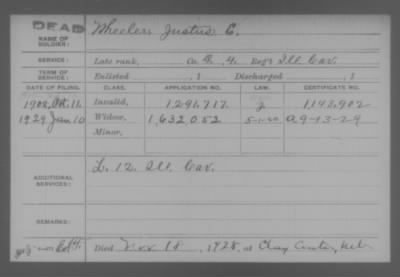 DEAD
NAME OF SOLDIER: Wheeler, Justus E.
SERVICE: Late rank, Co. G, 4, Reg't Ill. Cav.
TERM OF SERVICE: Enlisted , 1 Discharged , 1
DATE OF FILING. CLASS. APPLICATION NO. LAW. CERTIFICATE NO.
1902, Oct. 11. Invalid, 1,291,717. 1,143,902
1929 Jan 10 Widow, 1,632,052 5-1-20 a 9-13-29
Minor,
ADDITIONAL SERVICES: L. 12. Ill. Cav.
REMARKS:
Died Nov 18, 1928, at Clay Center, Neb